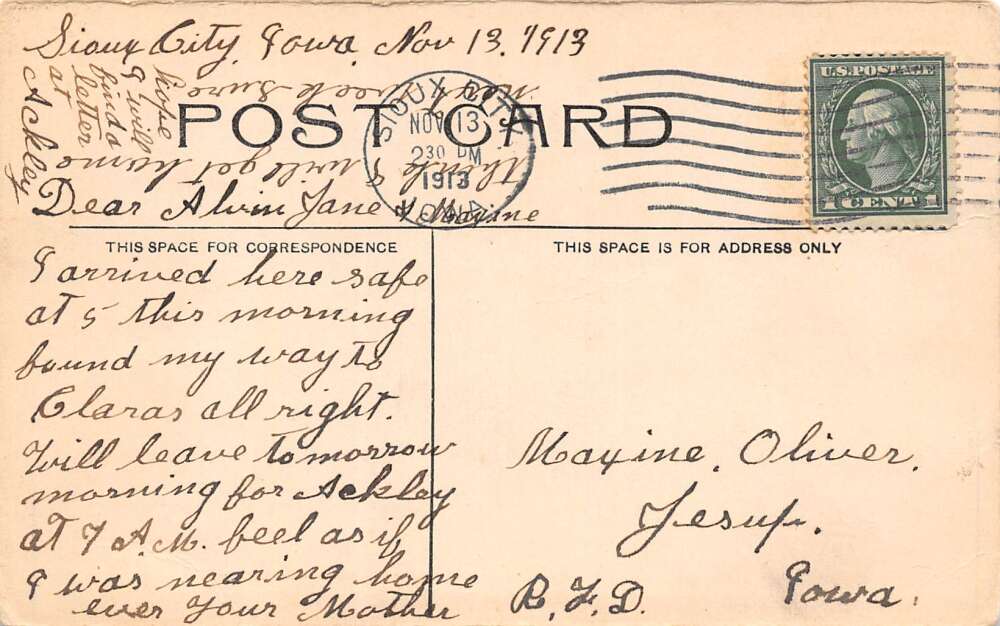 Sioux City, Iowa, Nov 13, 1913
POST CARD
SIOUX CITY
NOV 13
2 30 PM
1913
IOWA
U.S. POSTAGE
1 CENT 1
Dear Alvin Jane & Maxine
THIS SPACE FOR CORRESPONDENCE
I arrived here safe
at 5 this morning
found my way to
Claras all right.
Will leave tomorrow
morning for Ackley
at 7 A.M. feel as if
I was nearing home
ever your Mother
Think I will get home
next week sure
hope
I will
find a
letter
at
Ackley
THIS SPACE IS FOR ADDRESS ONLY
Maxine Oliver,
Jesup,
R.F.D. Iowa.